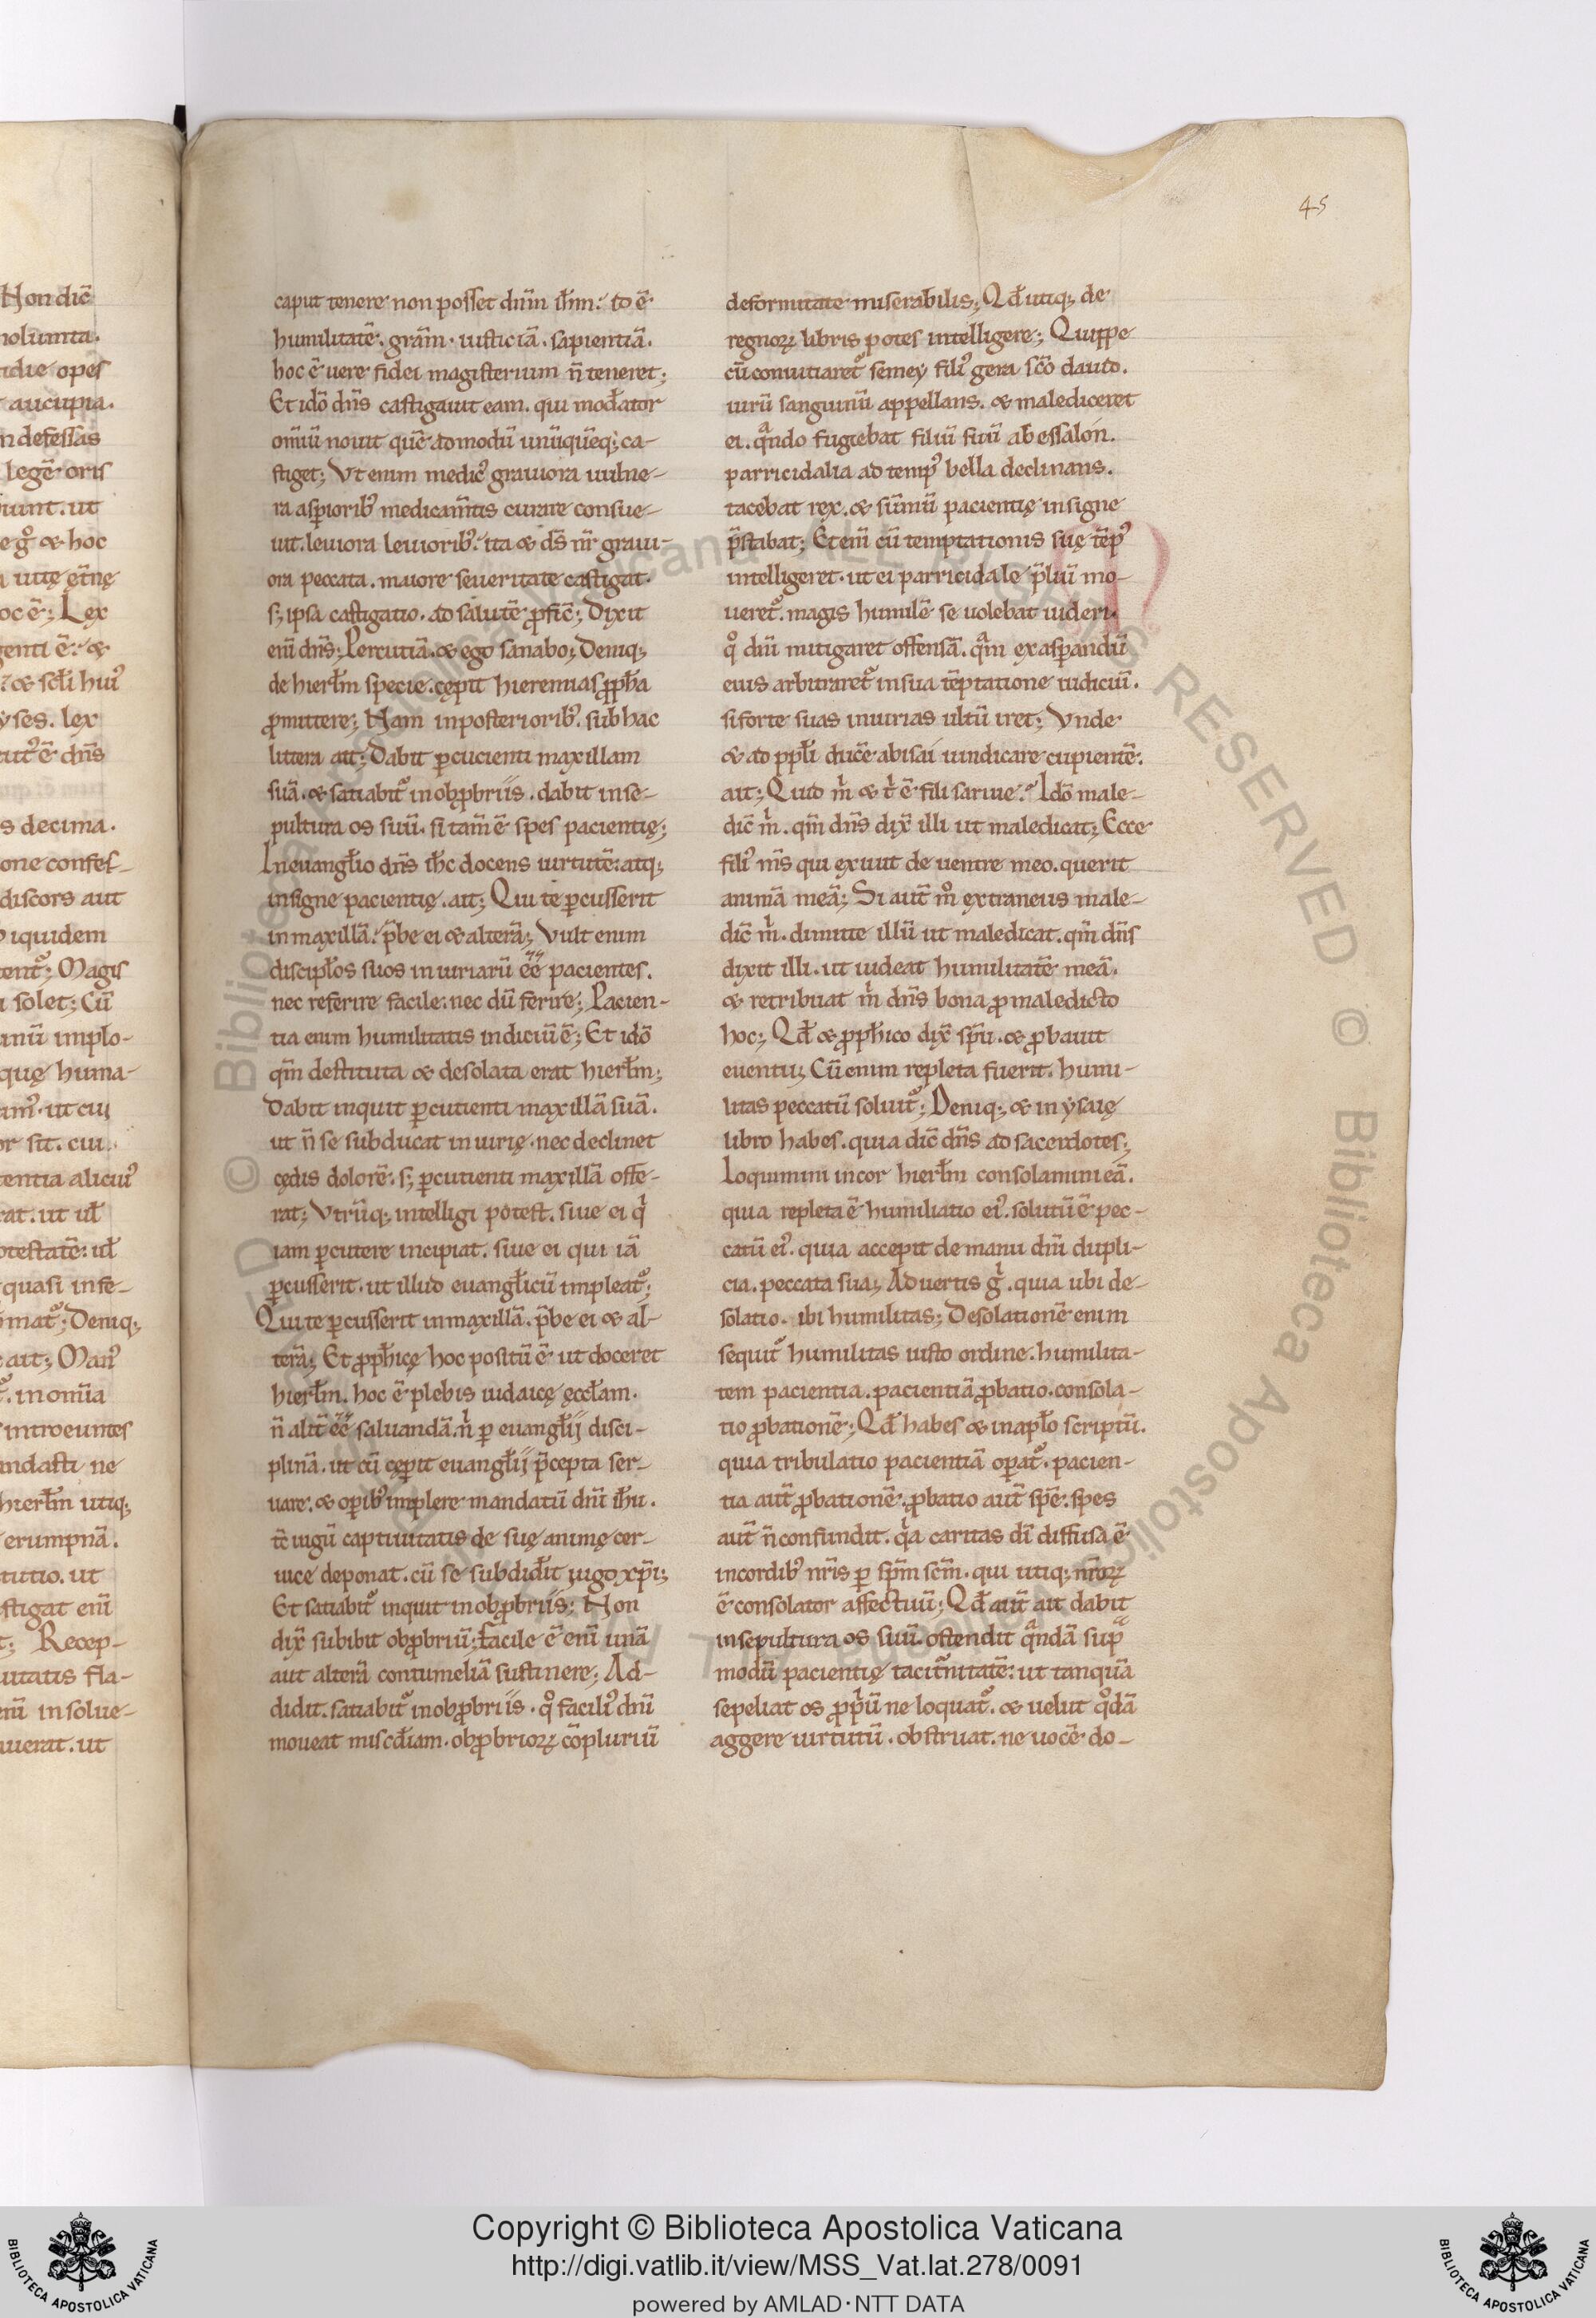 45
caput tenere non posset dnm̄ ihm̄. id ē
humilitatē. grām. iusticiā. sapientiā.
hoc ē uere fidei magisterium n̄ teneret;
Et idō dn̄s castigauit eam. qui mod̄ator
om̄iū nouit quē admodū unūquēq; ca-
stiget; Vt enim medicꝰ grauiora uulne-
ra asꝑioribꝰ medicam̄tis curare consue-
uit. leuiora leuioribꝰ. ita & ds̄ nr̄ graui-
ora peccata. maiore seueritate castigat.
s; ipsa castigatio. ad salutē ꝓfic̄; Dixit
enī dn̄s; Percutiā. & ego sanabo; Deniq;
de hierłm specie. cępit hieremias ꝓpħa
ꝓmittere; Nam in posterioribꝰ. sub hac
littera ait; Dabit ꝑcucienti maxillam
suā. & satiabit᷑ in obꝓbriis. dabit in se-
pultura os suū. si tam̄ ē spes pacientię;
In euangłio dn̄s ihc̄ docens uirtutē. atq;
insigne pacientię. ait; Qui te ꝑcusserit
in maxillā. p̄be ei & alterā; Vult enim
discipłos suos iniuriarū ēē pacientes.
nec referire facile. nec dū ferire; Pacien-
tia enim humilitatis indiciū ē; Et idō
qm̄ destituta & desolata erat hierłm;
Dabit inquit ꝑcutienti maxillā suā.
ut n̄ se subducat iniurię. nec declinet
cędis dolorē. s; ꝑcutienti maxillā offe-
rat; Vtrūq; intelligi potest. siue ei qⁱ
iam ꝑcutere incipiat. siue ei qui iā
ꝑcusserit. ut illud euangłicū impleat᷑;
Qui te ꝑcusserit in maxillā. p̄be ei & al-
terā; Et ꝓpħicę hoc positū ē ut doceret
hierłm. hoc ē plebis iudaicę ęccłam.
n̄ alit̄ ēē saluandā. nⁱ ꝑ euangłij disci-
plinā. ut cū cęperit euangłij p̄cepta ser-
uare. & oꝑibꝰ implere mandatū dnī ihū.
tc̄ iugū captiuitatis de suę animę cer-
uice deponat. cū se subdidit̄ iugo xp̄i;
Et satiabit᷑ inquit in obꝓbriis; Non
dix̄ subibit obꝓbriū; facile ē enī unā
aut alterā contumeliā sustinere; Ad-
didit. satiabit᷑ in obꝓbriis. qͦ faciliꝰ dnī
moueat misc̄diam. obꝓbrioꝝ cōpluriū
deformitate miserabilis; Qd̄ utiq; de
regnoꝝ libris potes intelligere; Quippe
cū conuitiaret᷑ semey filiꝰ gera scō dauid.
uirū sanguinū appellans. & malediceret
ei. qᵃndo fugiebat filiū suū abessalón.
parricidalia ad tempꝰ bella declinans.
tacebat rex. & sūmū pacientię insigne
p̄stabat; Etenī cū temptationis suę tēpꝰ
intelligeret. ut ei parricidale p̄liū mo-
ueret᷑. magis humilē se uolebat uideri.
qͦ diū mitigaret offensā. qᵃm exasꝑandū
eius arbitraret᷑ in sua tēptatione iudiciū.
si forte suas iniurias ultū iret; Vnde
& ad ppłi ducē abisai uindicare cupientē.
ait; Quid mⁱ & tⁱ ē fili saruie? Idō male-
dic̄ mⁱ. qm̄ dn̄s dix̄ illi ut maledicat; Ecce
filiꝰ ms̄ qui exiuit de uentre meo. querit
animā meā; Si aut̄ mͦ extraneus male-
dic̄ mⁱ. dimitte illū ut maledicat. qm̄ dn̄s
dixit illi. ut uideat humilitatē meā.
& retribuat mⁱ dn̄s bona ꝓ maledicto
hoc; Qd̄ & ꝓpħico dix̄ spū. & ꝓbauit
euentu; Cū enim repleta fuerit. humi-
litas peccatū soluit᷑; Deniq; & in ysaię
libro habes. quia dic̄ dn̄s ad sacerdotes;
Loquimini in cor hierłm consolamini eā.
quia repleta ē humiliatio eiꝰ. solutū ē pec-
catū eiꝰ. quia accepit de manu dnī dupli-
cia. peccata sua; Aduertis gⁱ. quia ubi de-
solatio. ibi humilitas; Desolationē enim
sequit᷑ humilitas iusto ordine. humilita-
tem pacientia. pacientiā ꝓbatio. consola-
tio ꝓbationē; Qd̄ habes & in apłō scriptū.
quia tribulatio pacientiā oꝑat᷑. pacien-
tia aut̄ ꝓbationē. ꝓbatio aut̄ spē. spes
aut̄ n̄ confundit. qⁱa caritas dī diffusa ē
in cordibꝰ nr̄is ꝑ spm̄ scm̄. qui utiq; nr̄oꝝ
ē consolator affectuū; Qd̄ aut̄ ait dabit
in sepultura os suū. ostendit qᵃndā suꝑ
modū pacientię taciturnitatē. ut tanquā
sepeliat os ꝓpⁱū ne loquat᷑. & uelut qͦdā
aggere uirtutū. obstruat. ne uocē do-
Copyright © Biblioteca Apostolica Vaticana
http://digi.vatlib.it/view/MSS_Vat.lat.278/0091
powered by AMLAD·NTT DATA